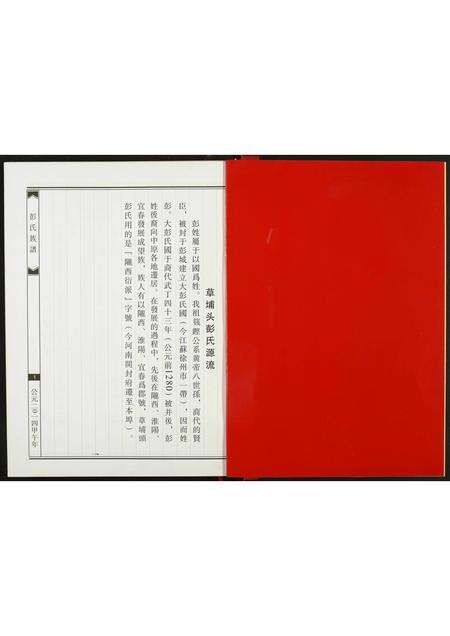 草埔头彭氏源流
彭姓屬于以國爲姓。我祖籛鏗公系黃帝八世孫,商代的賢
臣,被封于彭城建立大彭氏國(今江蘇徐州市一帶),因而姓
彭。大彭氏國于商代武丁四十三年(公元前1280)被并後,彭
姓後裔向中原各地遷居。在發展的過程中,先後在隴西、淮陽、
宜春發展成望族,族人有以隴西、淮陽、宜春爲郡號,草埔頭
彭氏用的是「隴西衍派」字號(今河南開封府遷至本埠)。
彭氏族譜
1
公元二〇一四甲午年